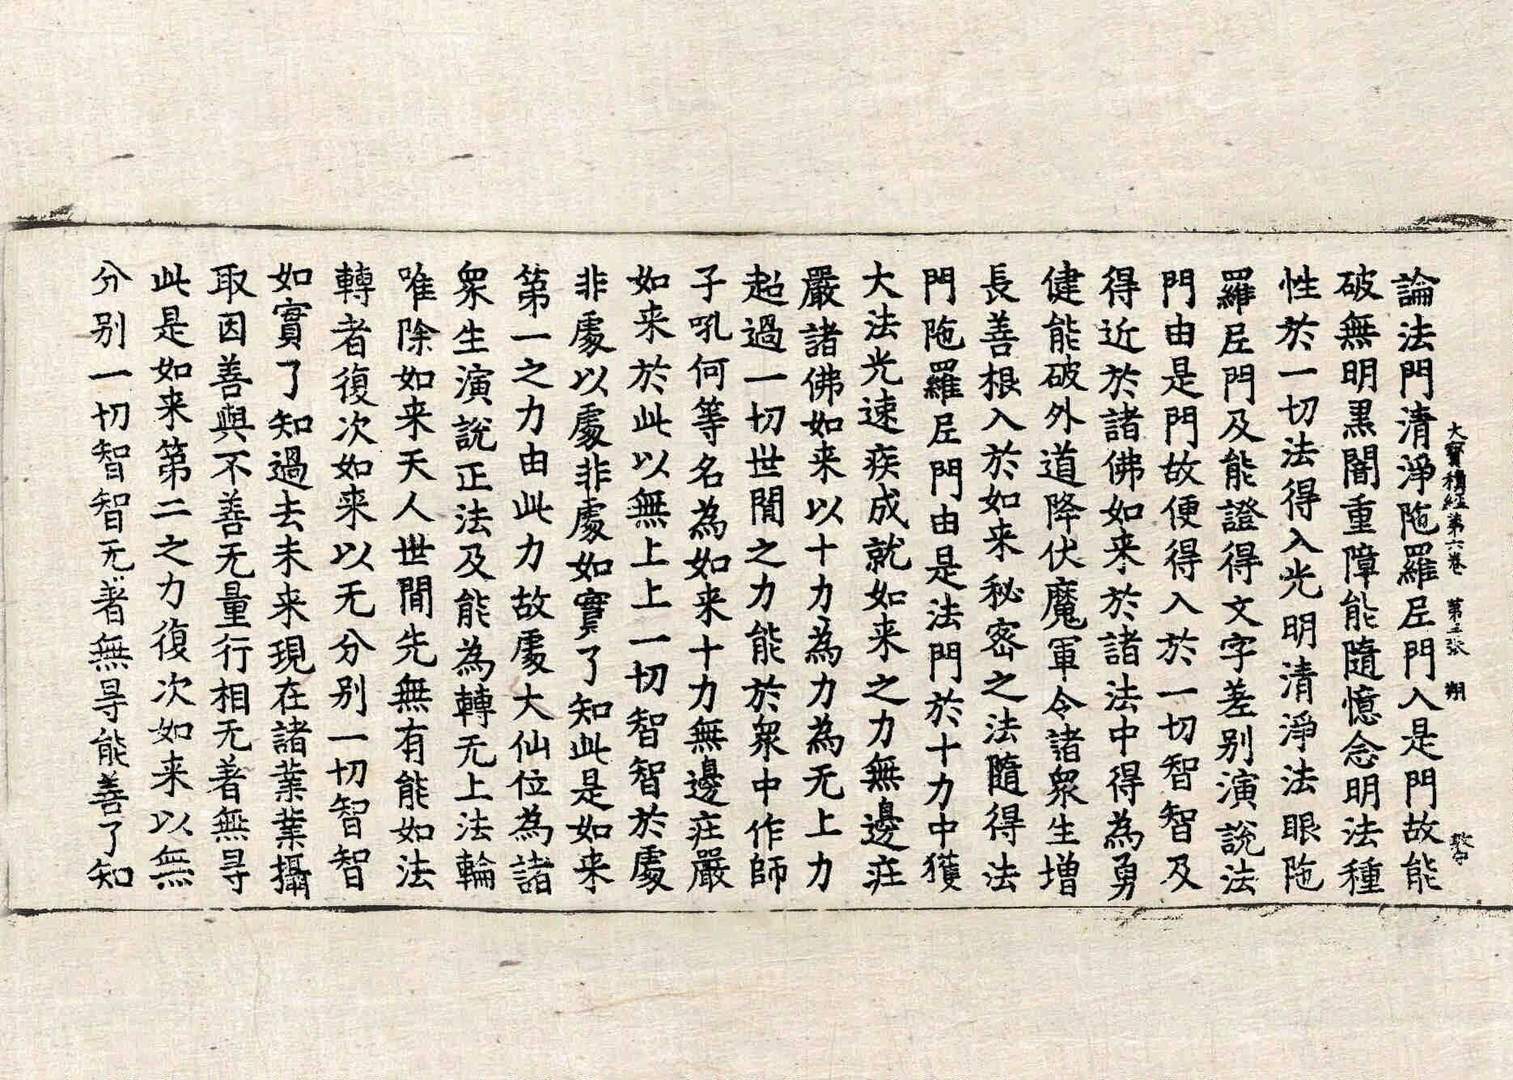 大寳積經第六卷 第五張 翔
論法門清淨陁羅尼門入是門故能
破無明黒闇重障能隨憶念明法種
性於一切法得入光明清淨法眼陁
羅尼門及能證得文字差别演說法
門由是門故便得入於一切智智及
得近於諸佛如来於諸法中得為勇
健能破外道降伏魔軍令諸衆生增
長善根入於如来秘密之法隨得法
門陁羅尼門由是法門於十力中獲
大法光速疾成就如来之力無邊荘
嚴諸佛如来以十力為力為无上力
超過一切世間之力能於衆中作師
子吼何等名為如来十力無邊荘嚴
如来於此以無上上一切智智於處
非處以處非處如實了知此是如来
第一之力由此力故處大仙位為諸
衆生演說正法及能為轉无上法輪
唯除如来天人世間先無有能如法
轉者復次如来以无分别一切智智
如實了知過去未来現在諸業業攝
取因善與不善无量行相无著無㝵
此是如来第二之力復次如来以無
分别一切智智无著無㝵能善了知